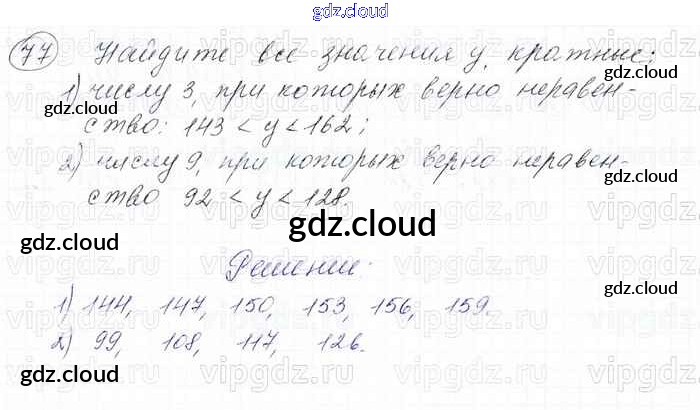 gdz.cloud
77 Найдите все значения y, кратные:
1) числу 3, при которых верно неравен-
ство: 143 < y < 162;
2) числу 9, при которых верно неравен-
ство 92 < y < 128.
gdz.cloud
Решение:
1) 144, 147, 150, 153, 156, 159.
2) 99, 108, 117, 126.
gdz.cloud